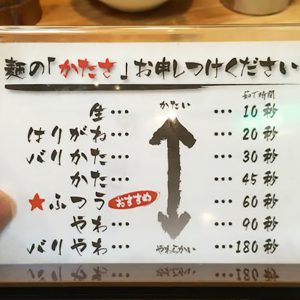 麺の「かたさ」お申しつけください
茹で時間
かたい
生… 10秒
はりがね… 20秒
バリかた… 30秒
かた… 45秒
★ふつう おすすめ 60秒
やわ… 90秒
バリやわ… 180秒
やわらかい